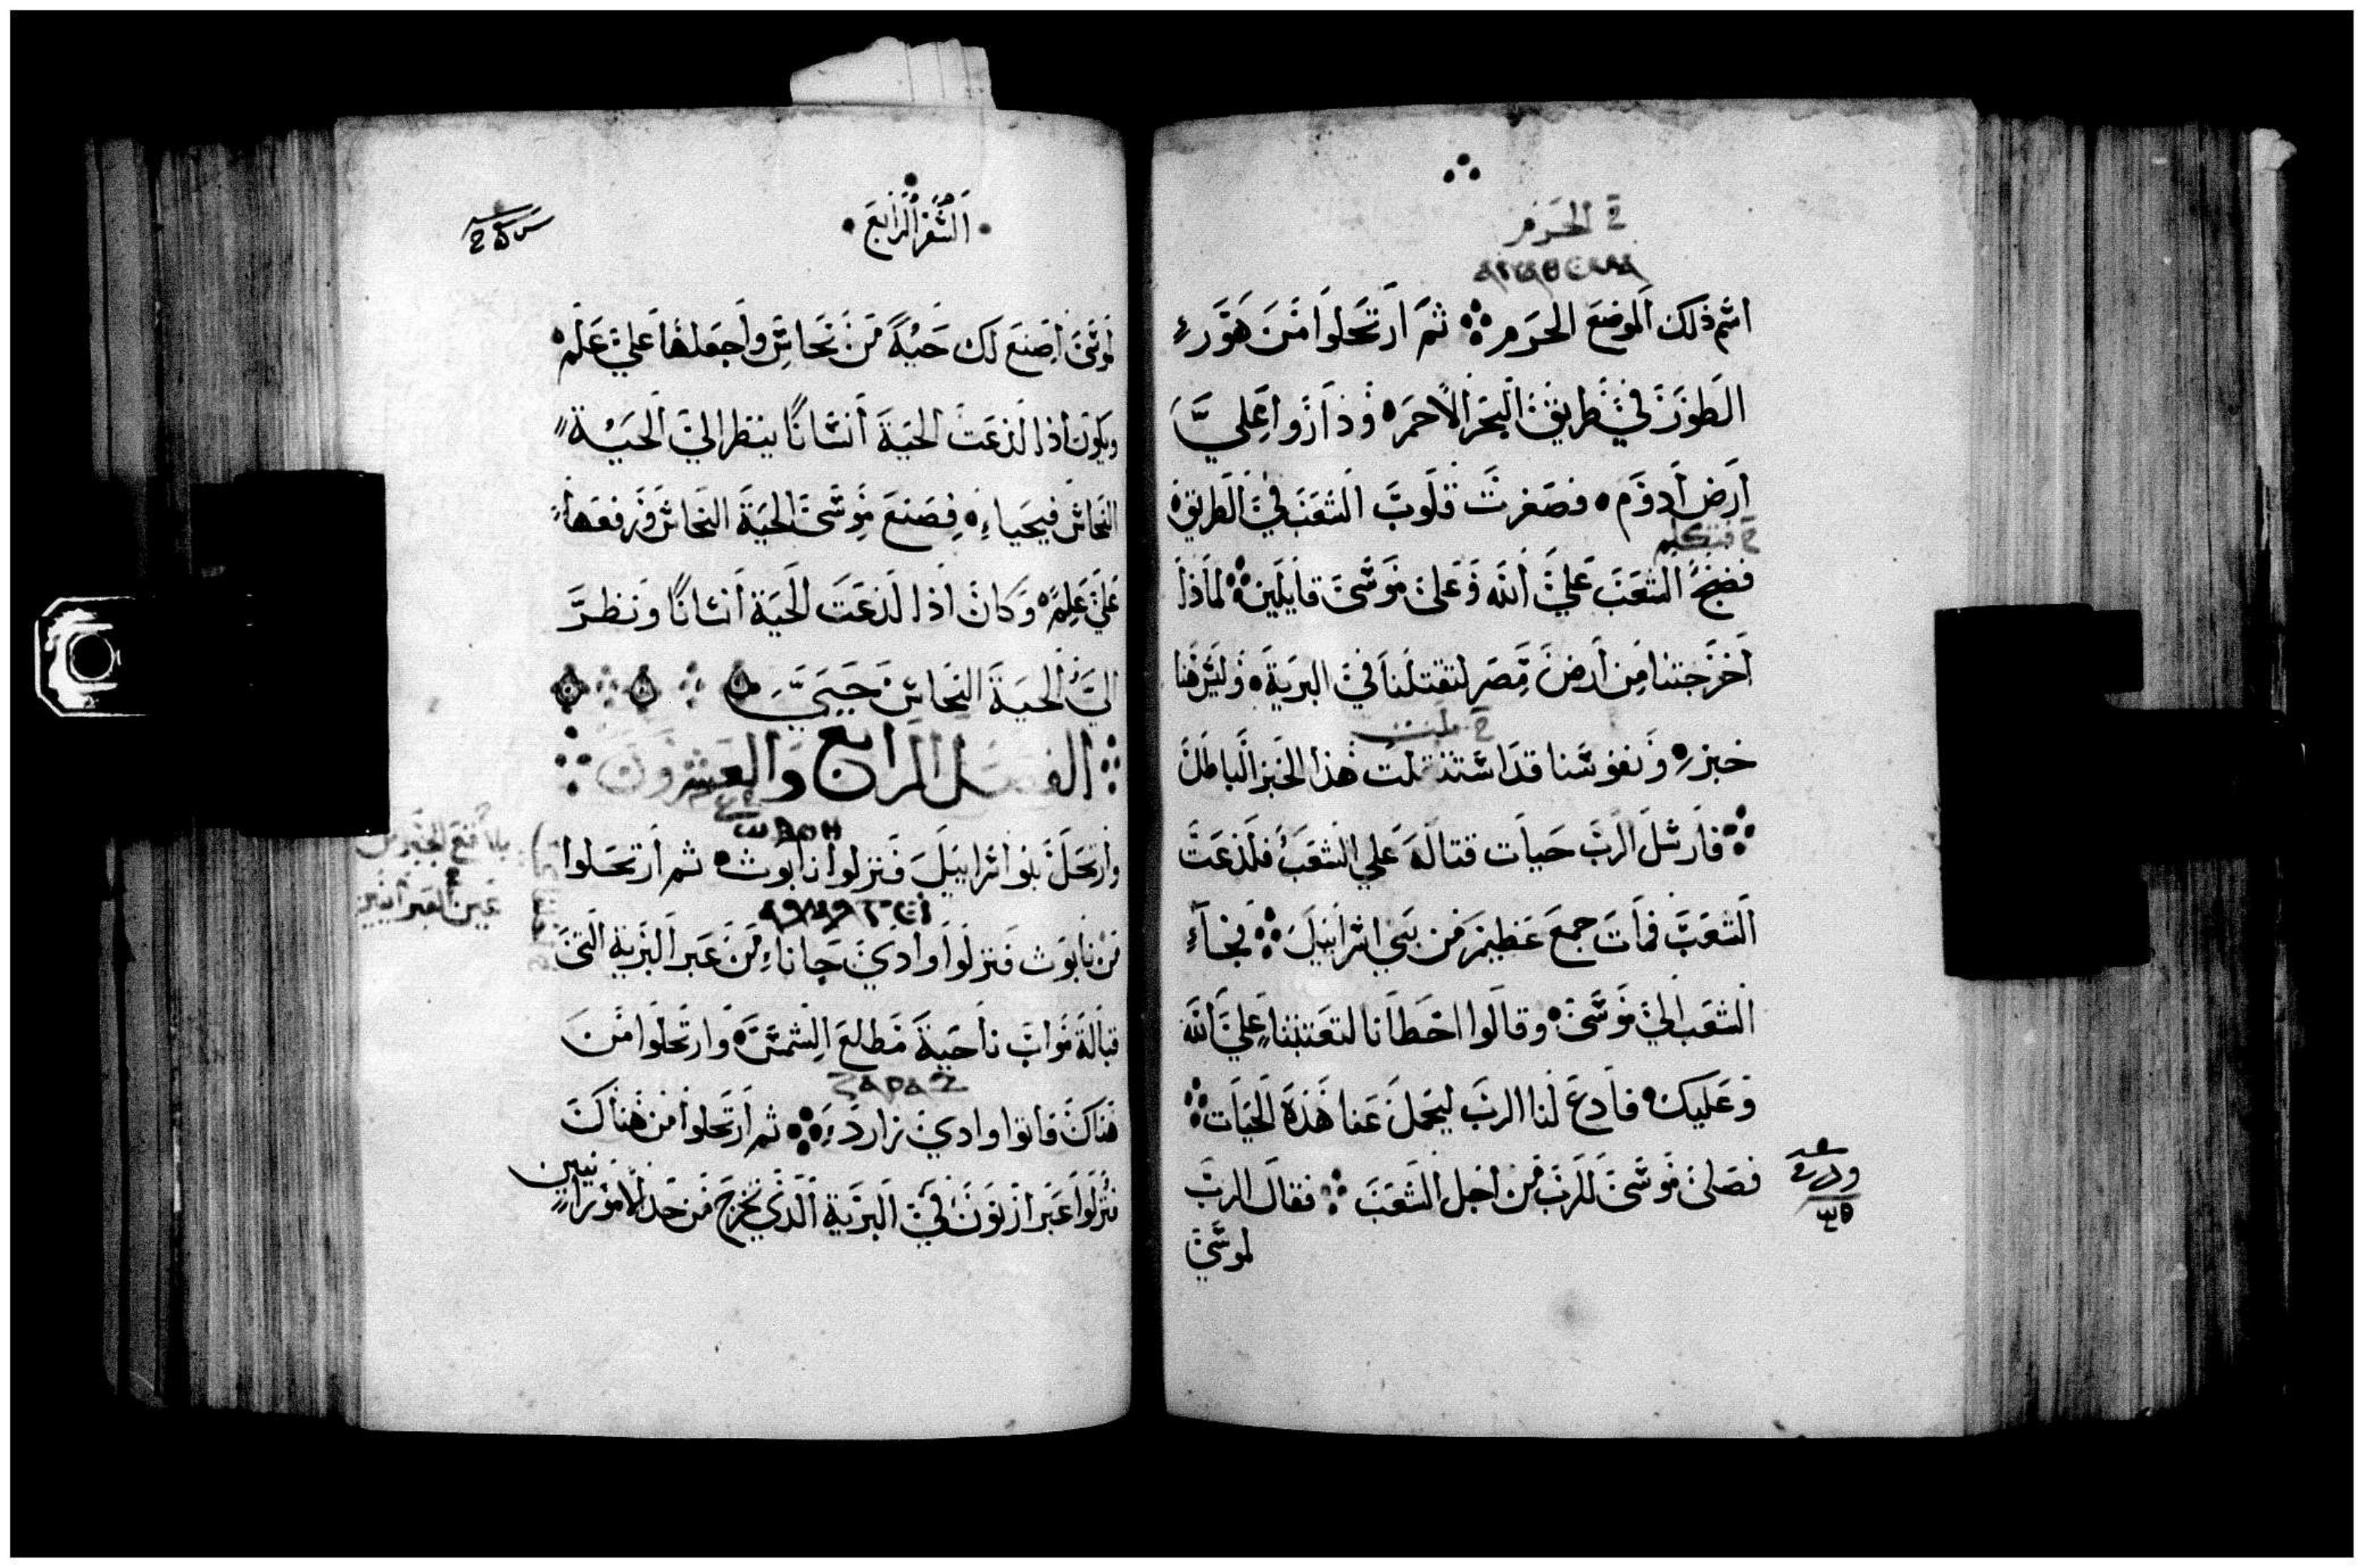 الحرم
اسم ذلك الموضع الحرم ثم ارتحلوا من هور
الطور في طريق البحر الاحمر وداروا علي
ارض ادوم فصغرت قلوب الشعب في الطريق
فتكلم
فضج الشعب علي الله وعلى موسى قايلين لماذا
اخرجتنا من ارض مصر لتقتلنا في البرية وليس هنا
خبز ونفوسنا قد استثقلت هذا الخبز الباطل
فارسل الرب حيات قتالة علي الشعب فلذعت
الشعب فمات جمع عظيم من بني اسراييل فجاء
الشعب الي موسى وقالوا اخطانا لتعتبنا علي الله
وعليك فادع لنا الرب ليحمل عنا هذه الحيات
فصلى موسى للرب من اجل الشعب فقال الرب
لموسى
السفر الرابع
لموسى اصنع لك حية من نحاس واجعلها علي علم
ويكون اذا لذعت الحية انسانا ينظر الي الحية
النحاس فيحيا فصنع موسى الحية النحاس ورفعها
علي علم وكان اذا لذعت الحية انسانا ونظر
الي الحية النحاس حيي
الفصل الرابع والعشرون
وارتحل بنوا اسراييل فنزلوا نابوث ثم ارتحلوا
من نابوث فنزلوا وادي جاناء من عبر البرية التي
قبالة مواب ناحية مطالع الشمس وارتحلوا من
ⲌⲀⲢⲀⲆ
هناك فاتوا وادي زارد ثم ارتحلوا من هناك
فنزلوا عبر ارنون في البرية الذي تخرج من حد الامورانيين